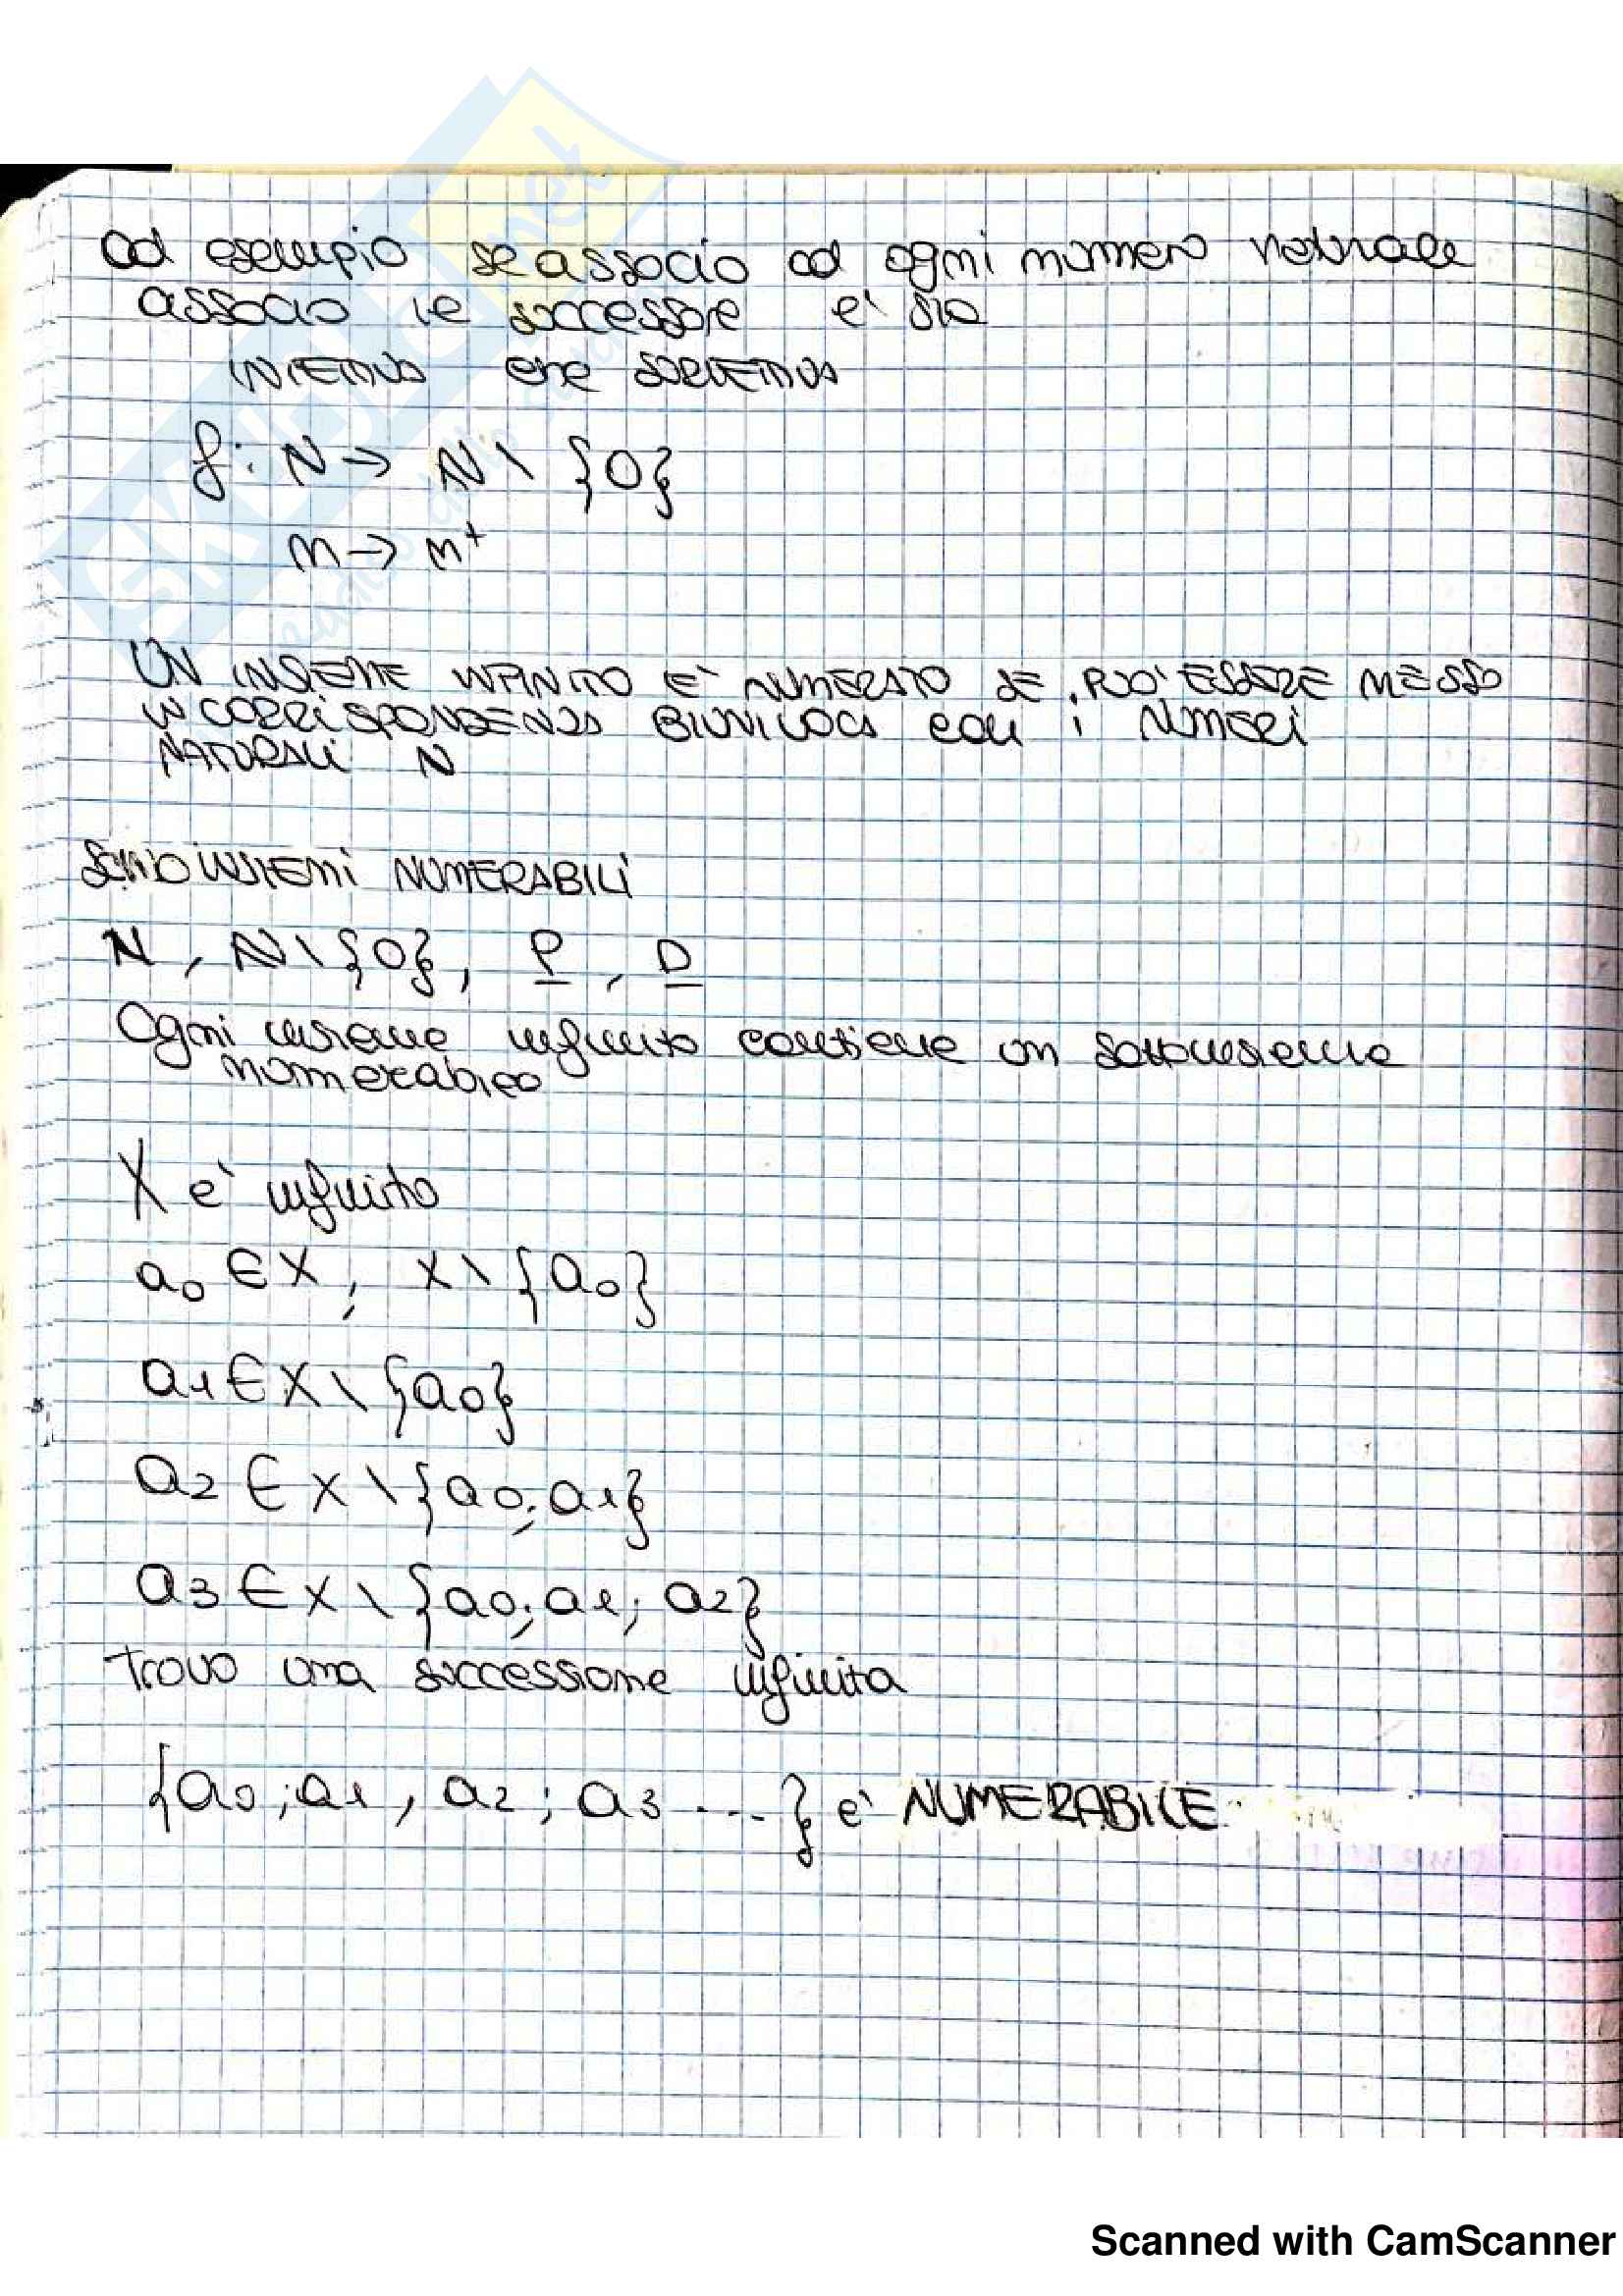 ad esempio se associo ad ogni numero naturale
associo il successore e' sia
INIETTIVA che SURIETTIVA
f: N → N \ {0}
n → n⁺
UN INSIEME INFINITO E' NUMERATO SE PUO' ESSERE MESSO
IN CORRISPONDENZA BIUNIVOCA con i NUMERI
NATURALI N
SONO INSIEMI NUMERABILI
N, N \ {0}, P, D
Ogni insieme infinito contiene un sottoinsieme
numerabile
X e' infinito
a₀ ∈ X; X \ {a₀}
a₁ ∈ X \ {a₀}
a₂ ∈ X \ {a₀; a₁}
a₃ ∈ X \ {a₀; a₁; a₂}
trovo una successione infinita
{a₀; a₁, a₂; a₃ ....} e' NUMERABILE
Scanned with CamScanner